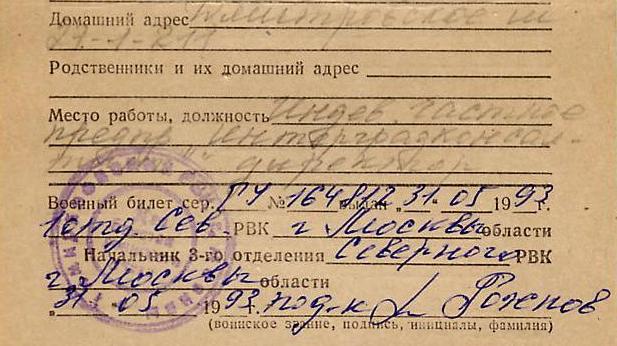 Домашний адрес Дмитровское ш
Родственники и их домашний адрес
Место работы, должность Индев. частное
предпр.
директор
Военный билет сер. ГУ № 164812 выдан „ 31 “ 05 19 93 г.
1 отд. Сев. РВК г Москвы области
Начальник 3-го отделения Северного РВК
г Москвы области
„ 31 “ 05 19 93 г. под-к
(воинское звание, подпись, инициалы, фамилия)